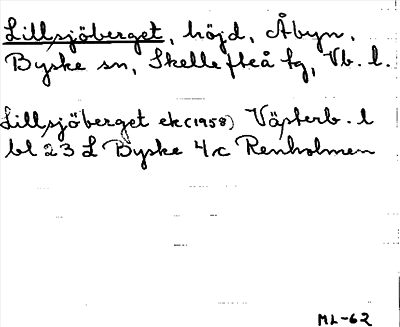 Lillsjöberget, höjd, Åbyn,
Byske sn, Skellefteå tg, Vb. l.
Lillsjöberget ek (1958) Västerb. l
bl 23 L Byske 4c Renholmen
ML-62